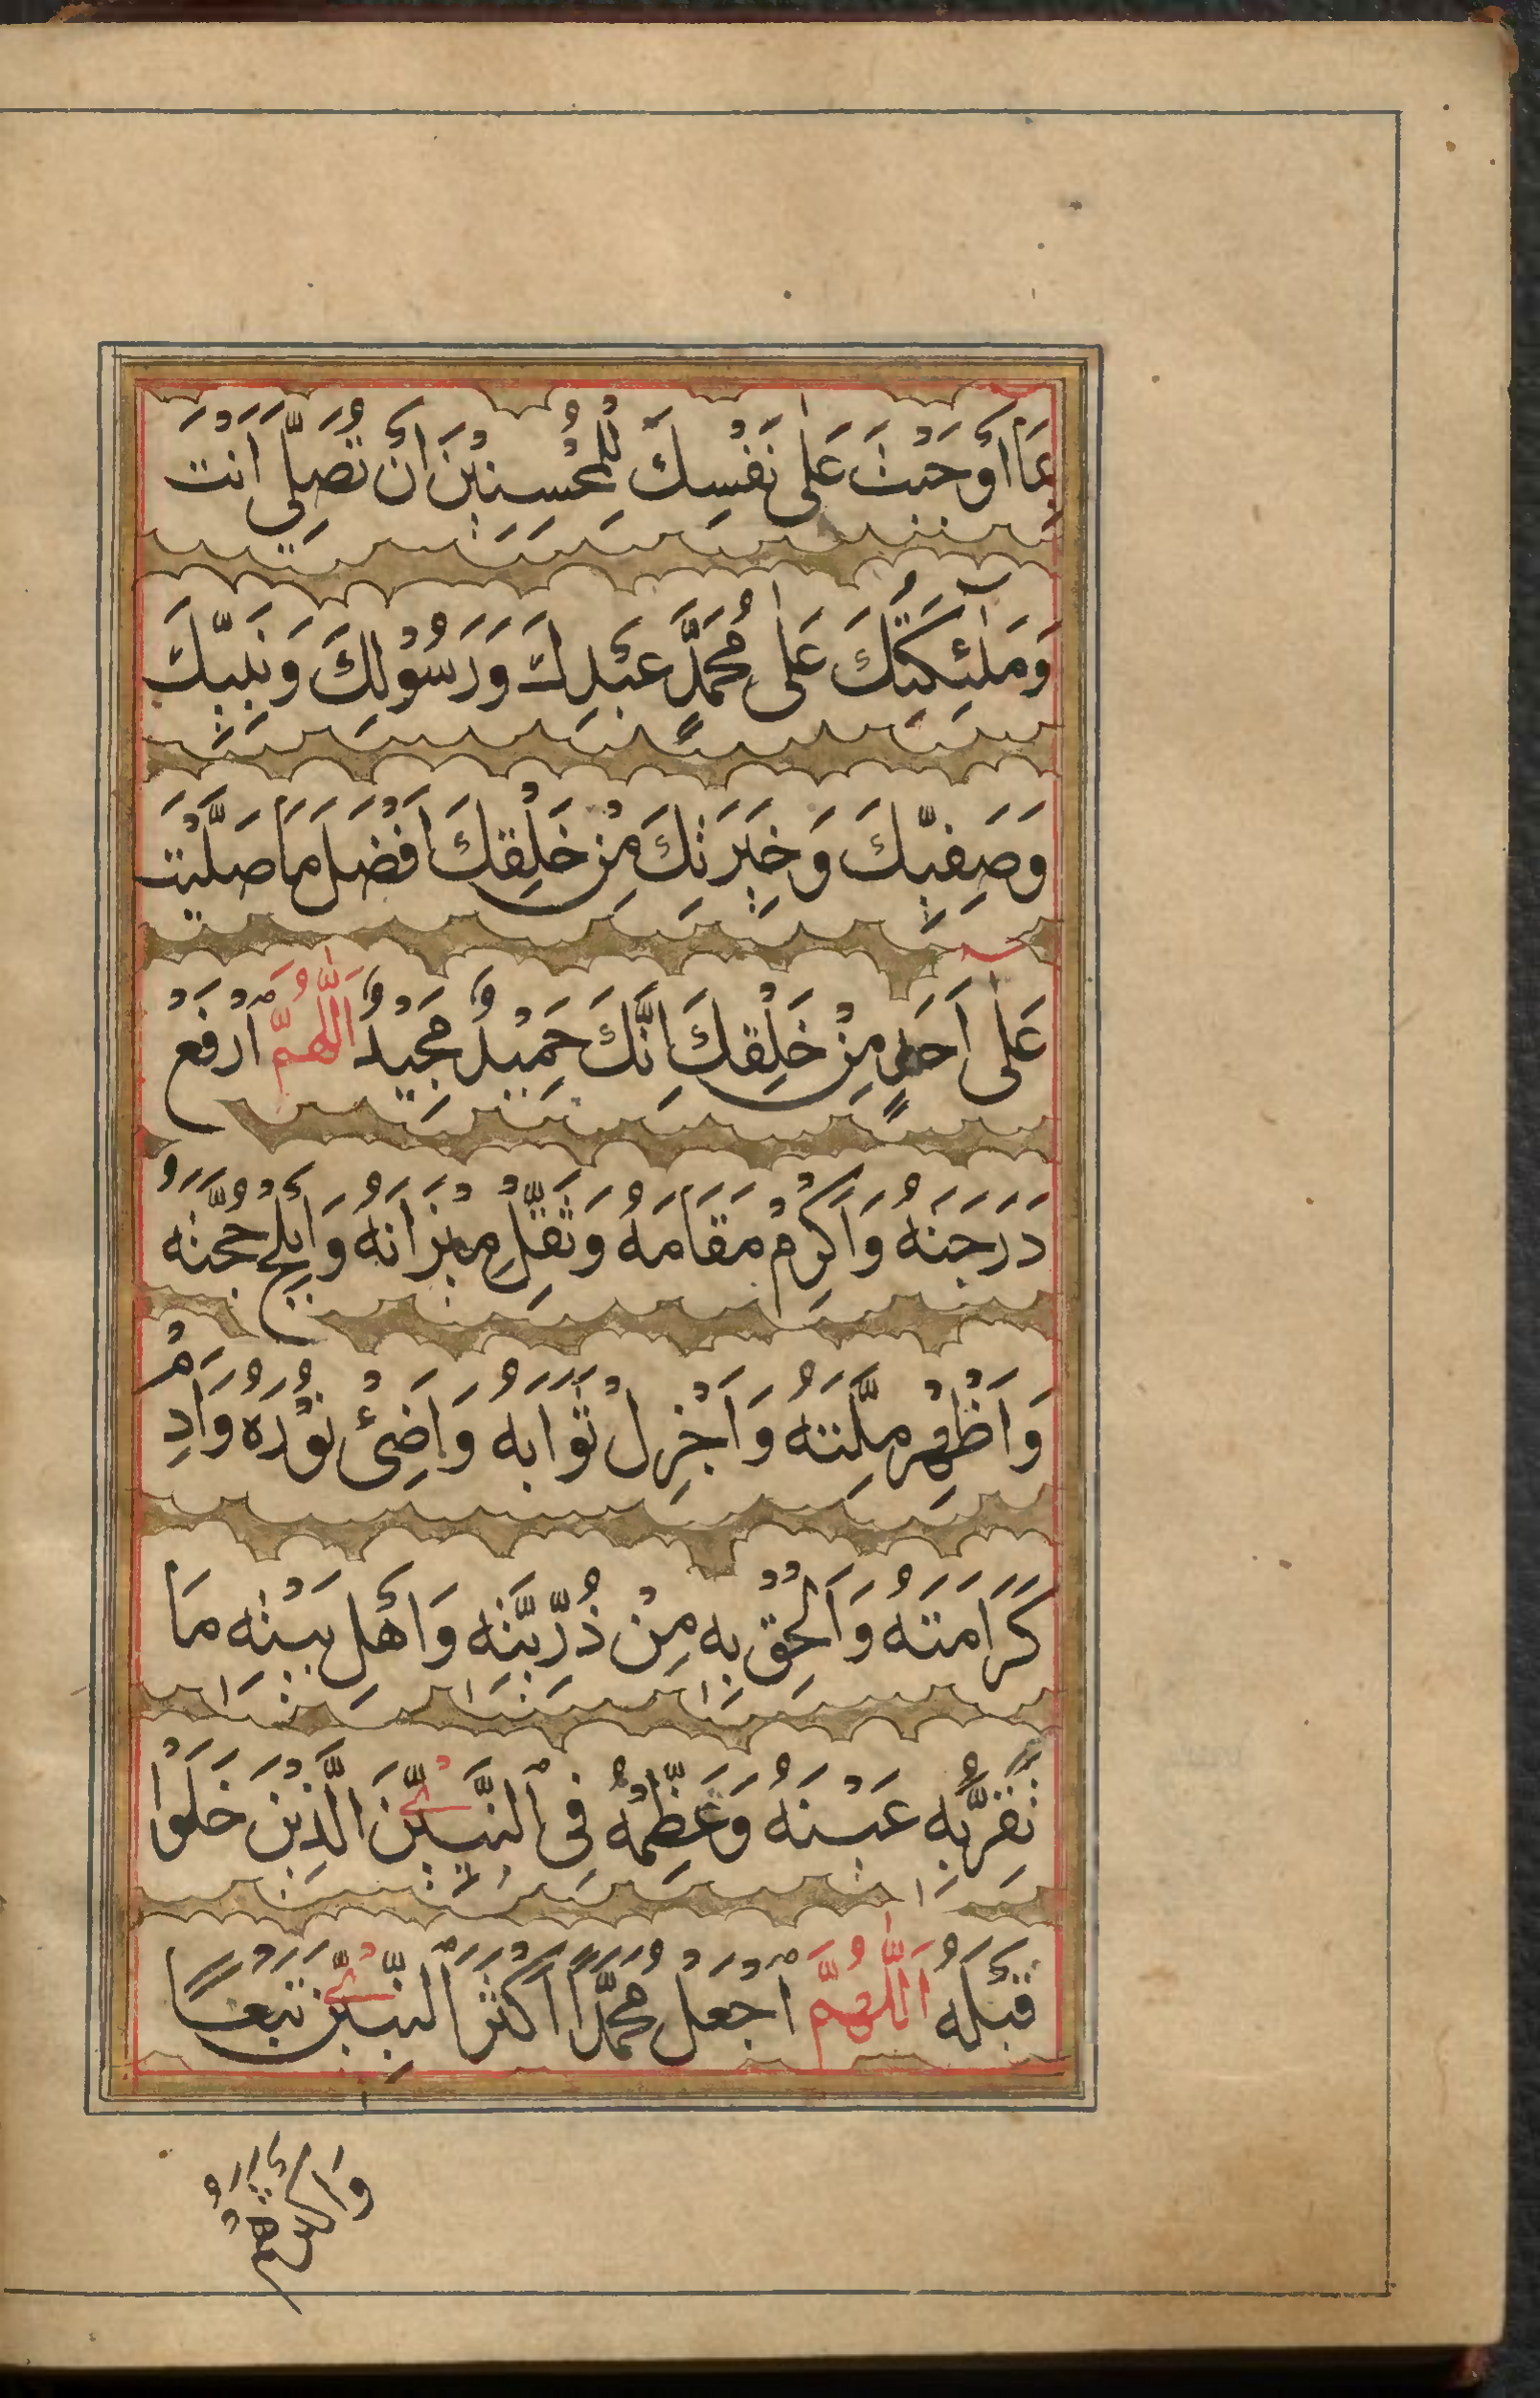 بِمَآ اَوْجَبْتَ عَلٰى نَفْسِكَ لِلْمُحْسِنِيْنَ اَنْ تُصَلِّىَ اَنْتَ
وَمَلٰٓئِكَتُكَ عَلٰى مُحَمَّدٍ عَبْدِكَ وَرَسُوْلِكَ وَنَبِيِّكَ
وَصَفِيِّكَ وَخِيَرَتِكَ مِنْ خَلْقِكَ اَفْضَلَ مَا صَلَّيْتَ
عَلٰٓى اَحَدٍ مِنْ خَلْقِكَ اِنَّكَ حَمِيْدٌ مَجِيْدٌ اَللّٰهُمَّ ارْفَعْ
دَرَجَتَهُ وَاَكْرِمْ مَقَامَهُ وَثَقِّلْ مِيْزَانَهُ وَاَبْلِجْ حُجَّتَهُ
وَاَظْهِرْ مِلَّتَهُ وَاَجْزِلْ ثَوَابَهُ وَاَضِئْ نُوْرَهُ وَاَدِمْ
كَرَامَتَهُ وَاَلْحِقْ بِهٖ مِنْ ذُرِّيَّتِهٖ وَاَهْلِ بَيْتِهٖ مَا
تَقَرُّ بِهٖ عَيْنُهُ وَعَظِّمْهُ فِى النَّبِيّٖنَ الَّذِيْنَ خَلَوْا
قَبْلَهُ اَللّٰهُمَّ اجْعَلْ مُحَمَّدًا اَكْثَرَ النَّبِيّٖنَ تَبَعًا
وَاَكْثَرَهُمْ